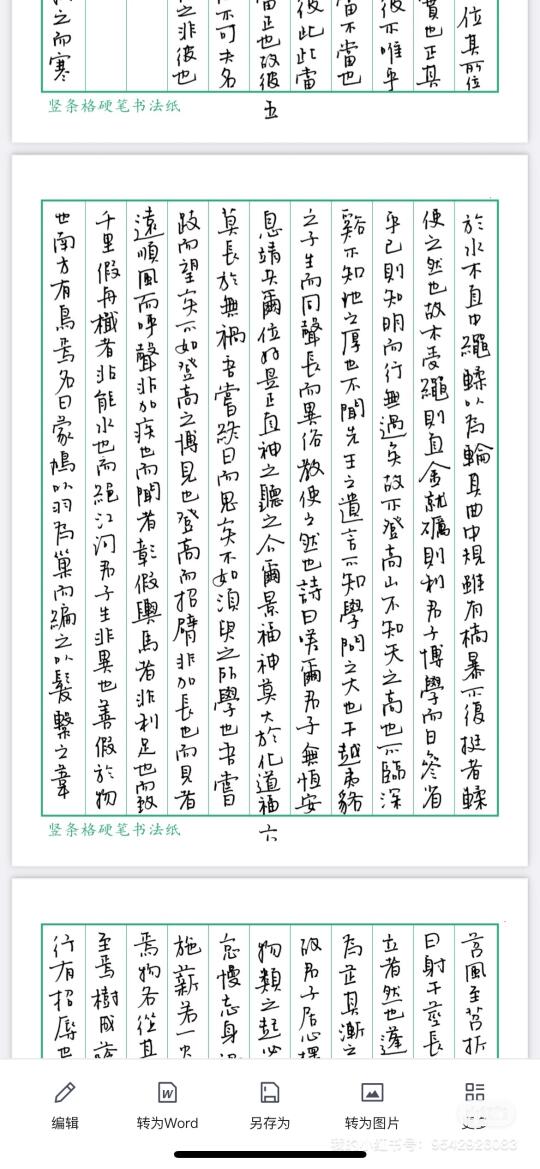 位其所位
實也正其
彼亦唯乎
當不當也
彼此此當
當正也故彼
亦不可夫名
之非彼也
之而寒
竖条格硬笔书法纸
五
於水木直中繩輮以為輪其曲中規雖有槁暴不復挺者輮
使之然也故木受繩則直金就礪則利君子博學而日參省
乎已則知明而行無過矣故不登高山不知天之高也不臨深
谿不知地之厚也不聞先王之遺言不知學問之大也干越夷貉
之子生而同聲長而異俗教使之然也詩曰嗟爾君子無恆安
息靖共爾位好是正直神之聽之介爾景福神莫大於化道福
莫長於無禍吾嘗終日而思矣不如須臾之所學也吾嘗
跂而望矣不如登高之博見也登高而招臂非加長也而見者
遠順風而呼聲非加疾也而聞者彰假輿馬者非利足也而致
千里假舟檝者非能水也而絕江河君子生非異也善假於物
也南方有鳥焉名曰蒙鳩以羽為巢而編之以髮繫之葦
竖条格硬笔书法纸
六
苕風至苕折
曰射干莖長
立者然也蓬
為芷其漸之
故君子居必擇
物類之起必
怠慢忘身禍
施薪若一火
焉物各從其
至焉樹成蔭
行有招辱也
编辑
转为Word
另存为
转为图片
更多
我的小红书号：9542926083